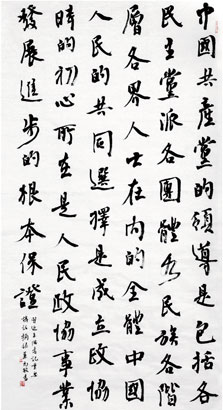 中國共產黨的領導是包括各
民主黨派各團體各民族各階
層各界人士在内的全體中國
人民的共同選擇是成立政協
時的初心所在是人民政協事業
發展進步的根本保證